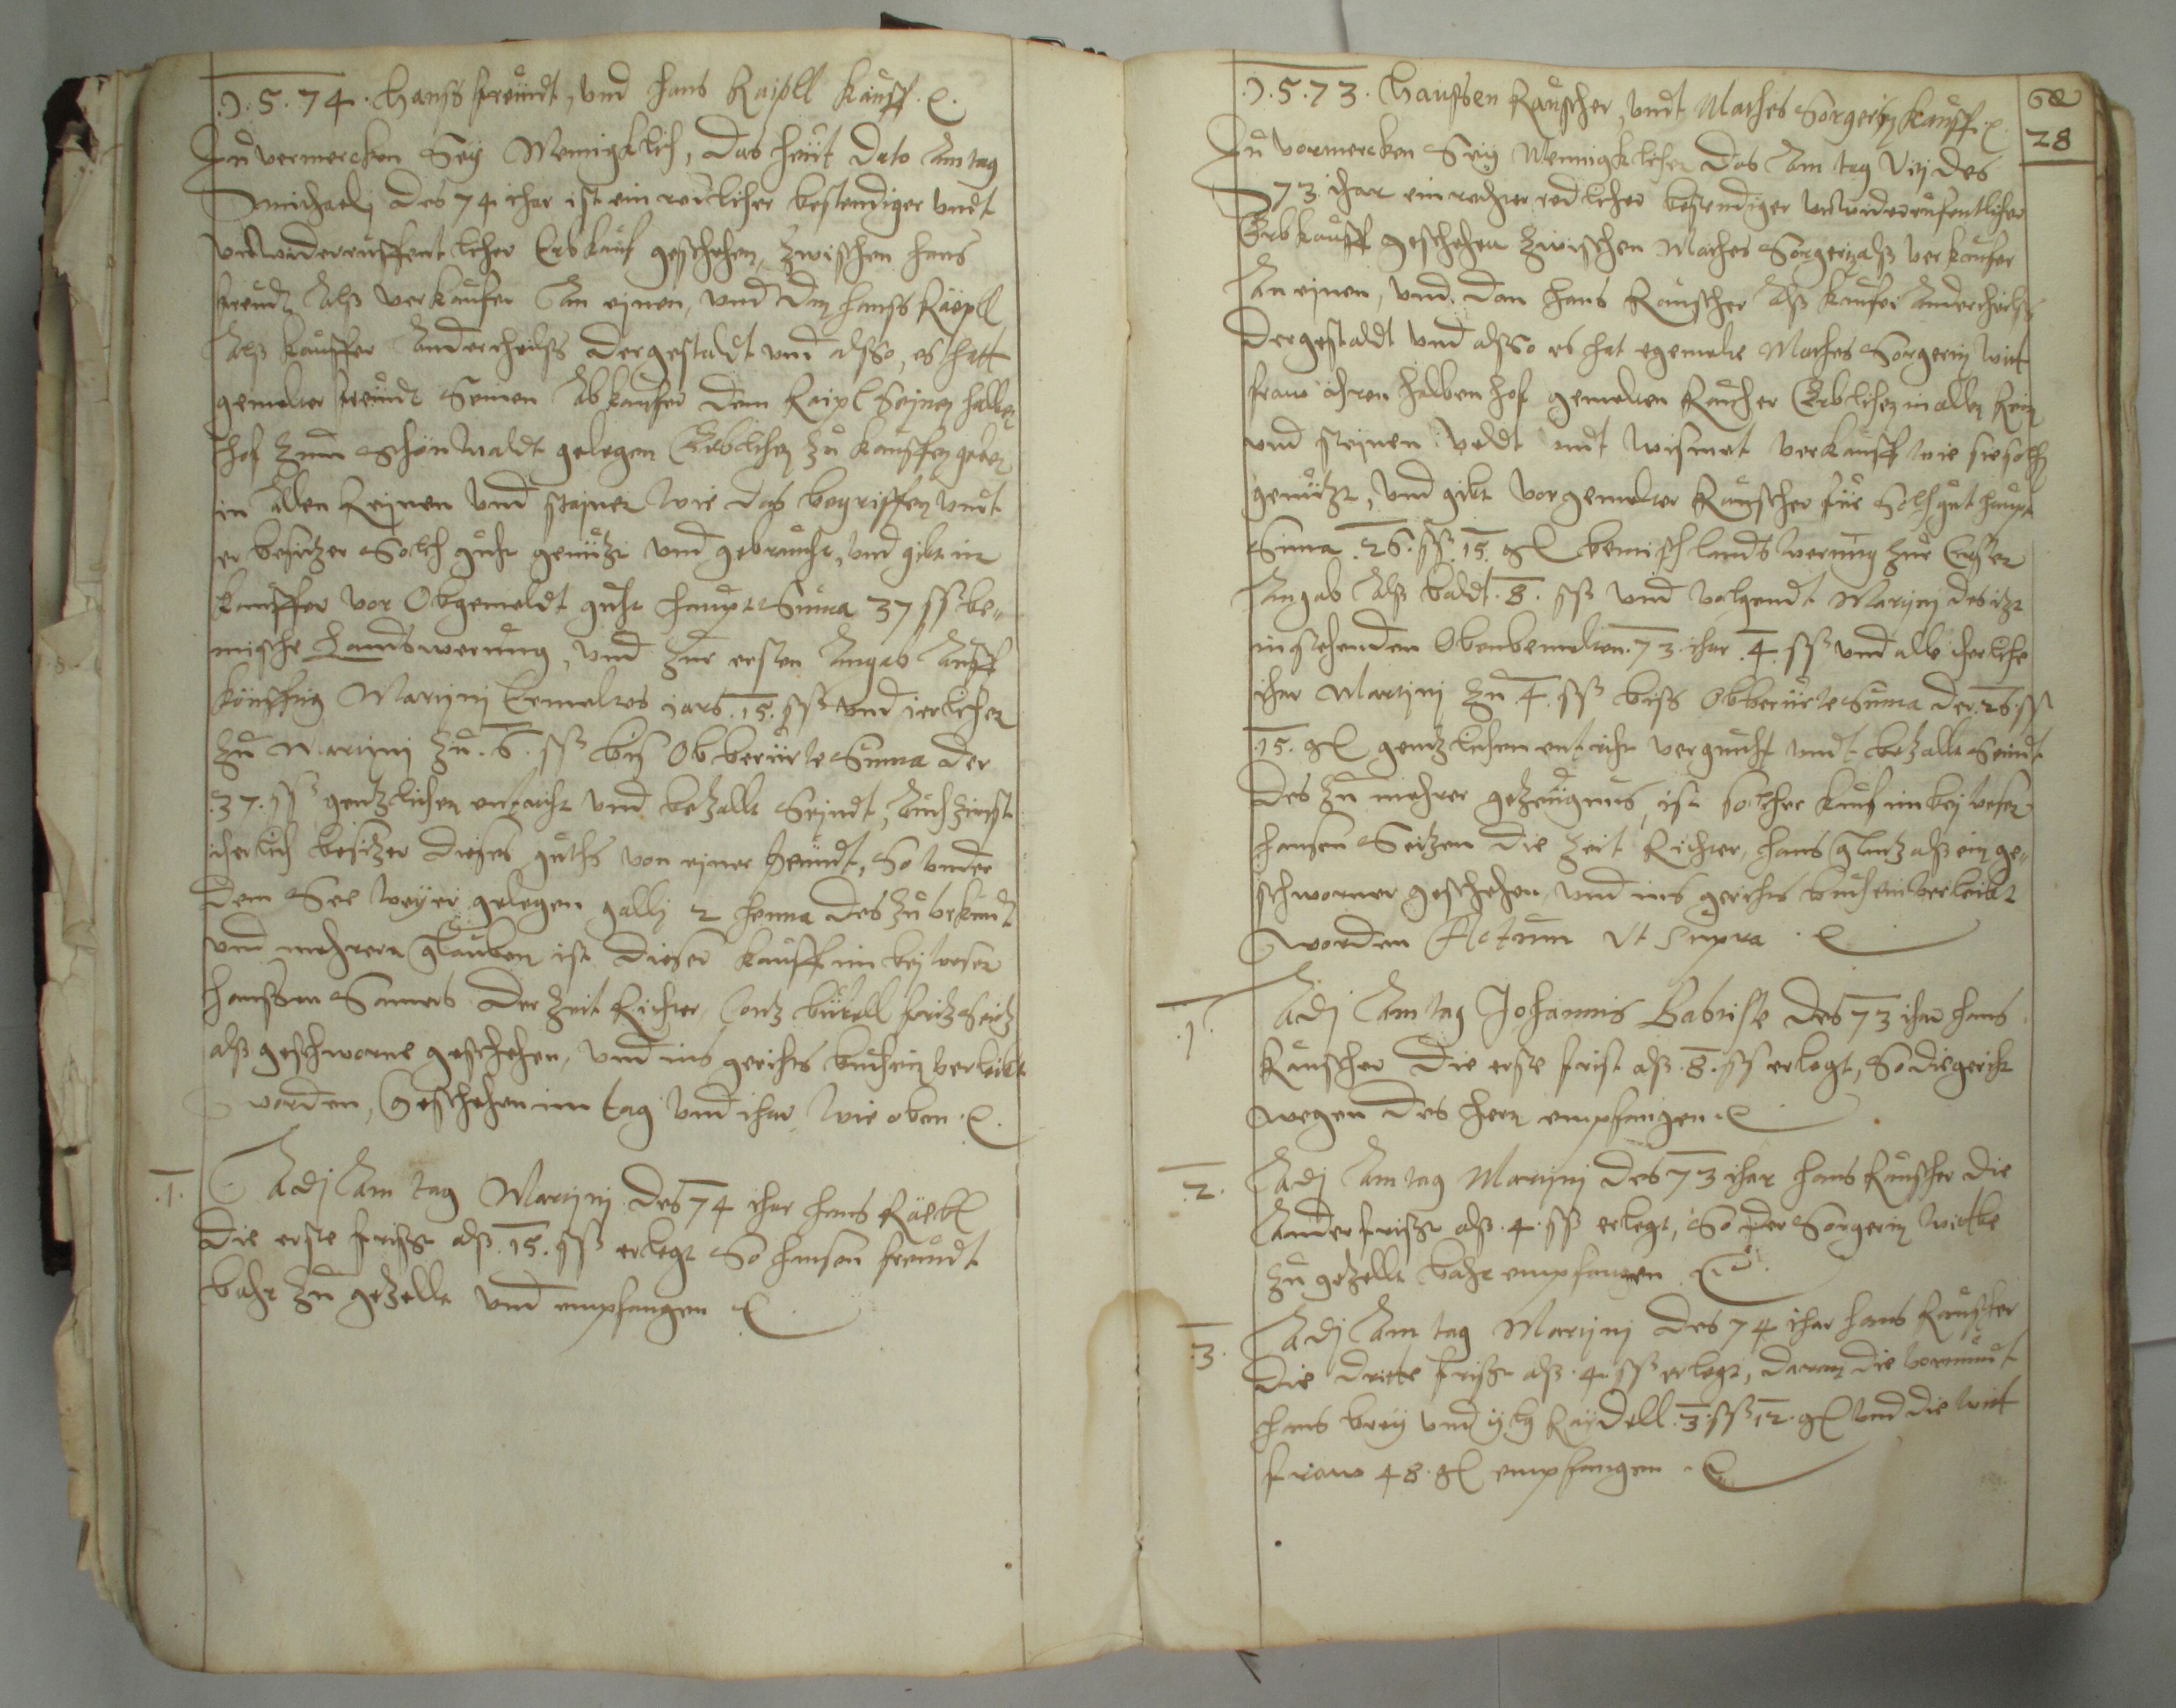 .1.5.74. Hanss freündt, vnd Hans Kaipll Kauff.
Zu uermercken Seÿ Mennigklich, Das heüt Dato Am tag
Michaelj des 74 ihar ist ein redlicher bestendiger vndt
vnwiderruffentlicher Erbkauf geschehen, zwischen Hans
freudt Alß verkaufer An einen, vnd Dan Hanss Käipll
Alß Kauffer Anderthailss dergestaldt vnd alsso, es hatt
gemelter freündt Seinen Abkaufer dem Kaipl Seinen halben
Hof zum Schönwaldt gelegen Erblichen zu kauffen geben
in Allen Reinen vnd stainen wie das begriffen vndt
er besitzer Solch guht genützt vnd gebraucht, vnd gibt im
Kauffer vor Obgemeldt guht haupt Suma 37 ss be-
mische Landswerung, vnd zur ersten Angab Auff
künfftig Martinj bemeltes iars .15. ss vnd ierlichen
zu Martinj zu .6. ss bis Obberürte Suma der
.37. ss gentzlichen entricht vnd bezallt Seindt, Auch zinst
iherlich besitzer dieses guths von einer Peündt, So vnder
dem See weyer gelegen gallj 2 henna des zu vrkundt
vnd mehrern glauben ist dieser Kauff im beÿ wesen
Hanssen Sameb der zeit Richter, Contz bürell fritz Seitz
alß geschworne geschehen, vnd ins gerichts buch ein verleibt
worden, Geschehen im tag vnd ihar wie oben.
.1. Adj Am tag Martinj des 74 ihar Hans Käibl
die erste frisst alß .15. ss erlegt So Hansen freündt
bahr zu gezellt vnd empfangen
68
28
.1.5.73. Haussen Rauscher, vndt Mathes Sorgerin kauff.
Zu vermercken Seÿ Mennigklichen das Am tag Vitj des
73. ihar ein rechter redlicher bestendiger vnwiderrufentlicher
Erbkauff geschehen zwischen Mathes Sorgerin alß verkaufer
An einen, vnd dan Hans Rauscher Alß Kaufer Anderthailss
dergestaldt vnd alsso es hat egemelte Mathes Sorgerin wit
fraw ihren halben hof gemelten Raucher Erblichen in allen Rein
vnd steinen veldt vnd wismat verkaufft wie sie solch
genützt, vnd gibt vorgemelter Rauscher für Solch gut haupt
Suma .26. ss .15. gl bemisch lands werung zur Erster
Angab Alß baldt .8. ss vnd volgendt Martinj des itzt
instehenden Obenbemelten .73. ihar .4. ss vnd alle iherliche
ihar Martinj zu .4. ss biss Obberürte Suma der .26. ss
.15. gl gentzlichen entricht vergnücht vndt bezallt Seindt
des zu mehrer gezeügnus, ist solcher kauf im beÿ wesen
Hansen Seitzen die Zeit Richter, Hans glantz alß ein ge-
schworner geschehen, vnd ins gerichts buch ein verleibt
worden Actum vt supra
.1. Adj Am tag Johannis Babtiste des 73 ihar Hans
Rauscher die erste frist alß .8. ss erlegt, So die gericht
wegen des hern empfangen
.2. Adj Am tag Martinj des 73 ihar Hans Rauscher die
Ander frisst alß .4. ss erlegt, So der Sorgerin witbe
zu gezellt bahr empfangen
.3. Adj Am tag Martinj des 74 ihar Hans Rauscher
die dritte frisst alß .4. ss erlegt, daran die vormündt
Hans breÿ vnd Raÿdell .3. ss 12. gl vnd die wit
fraw 48. gl empfangen